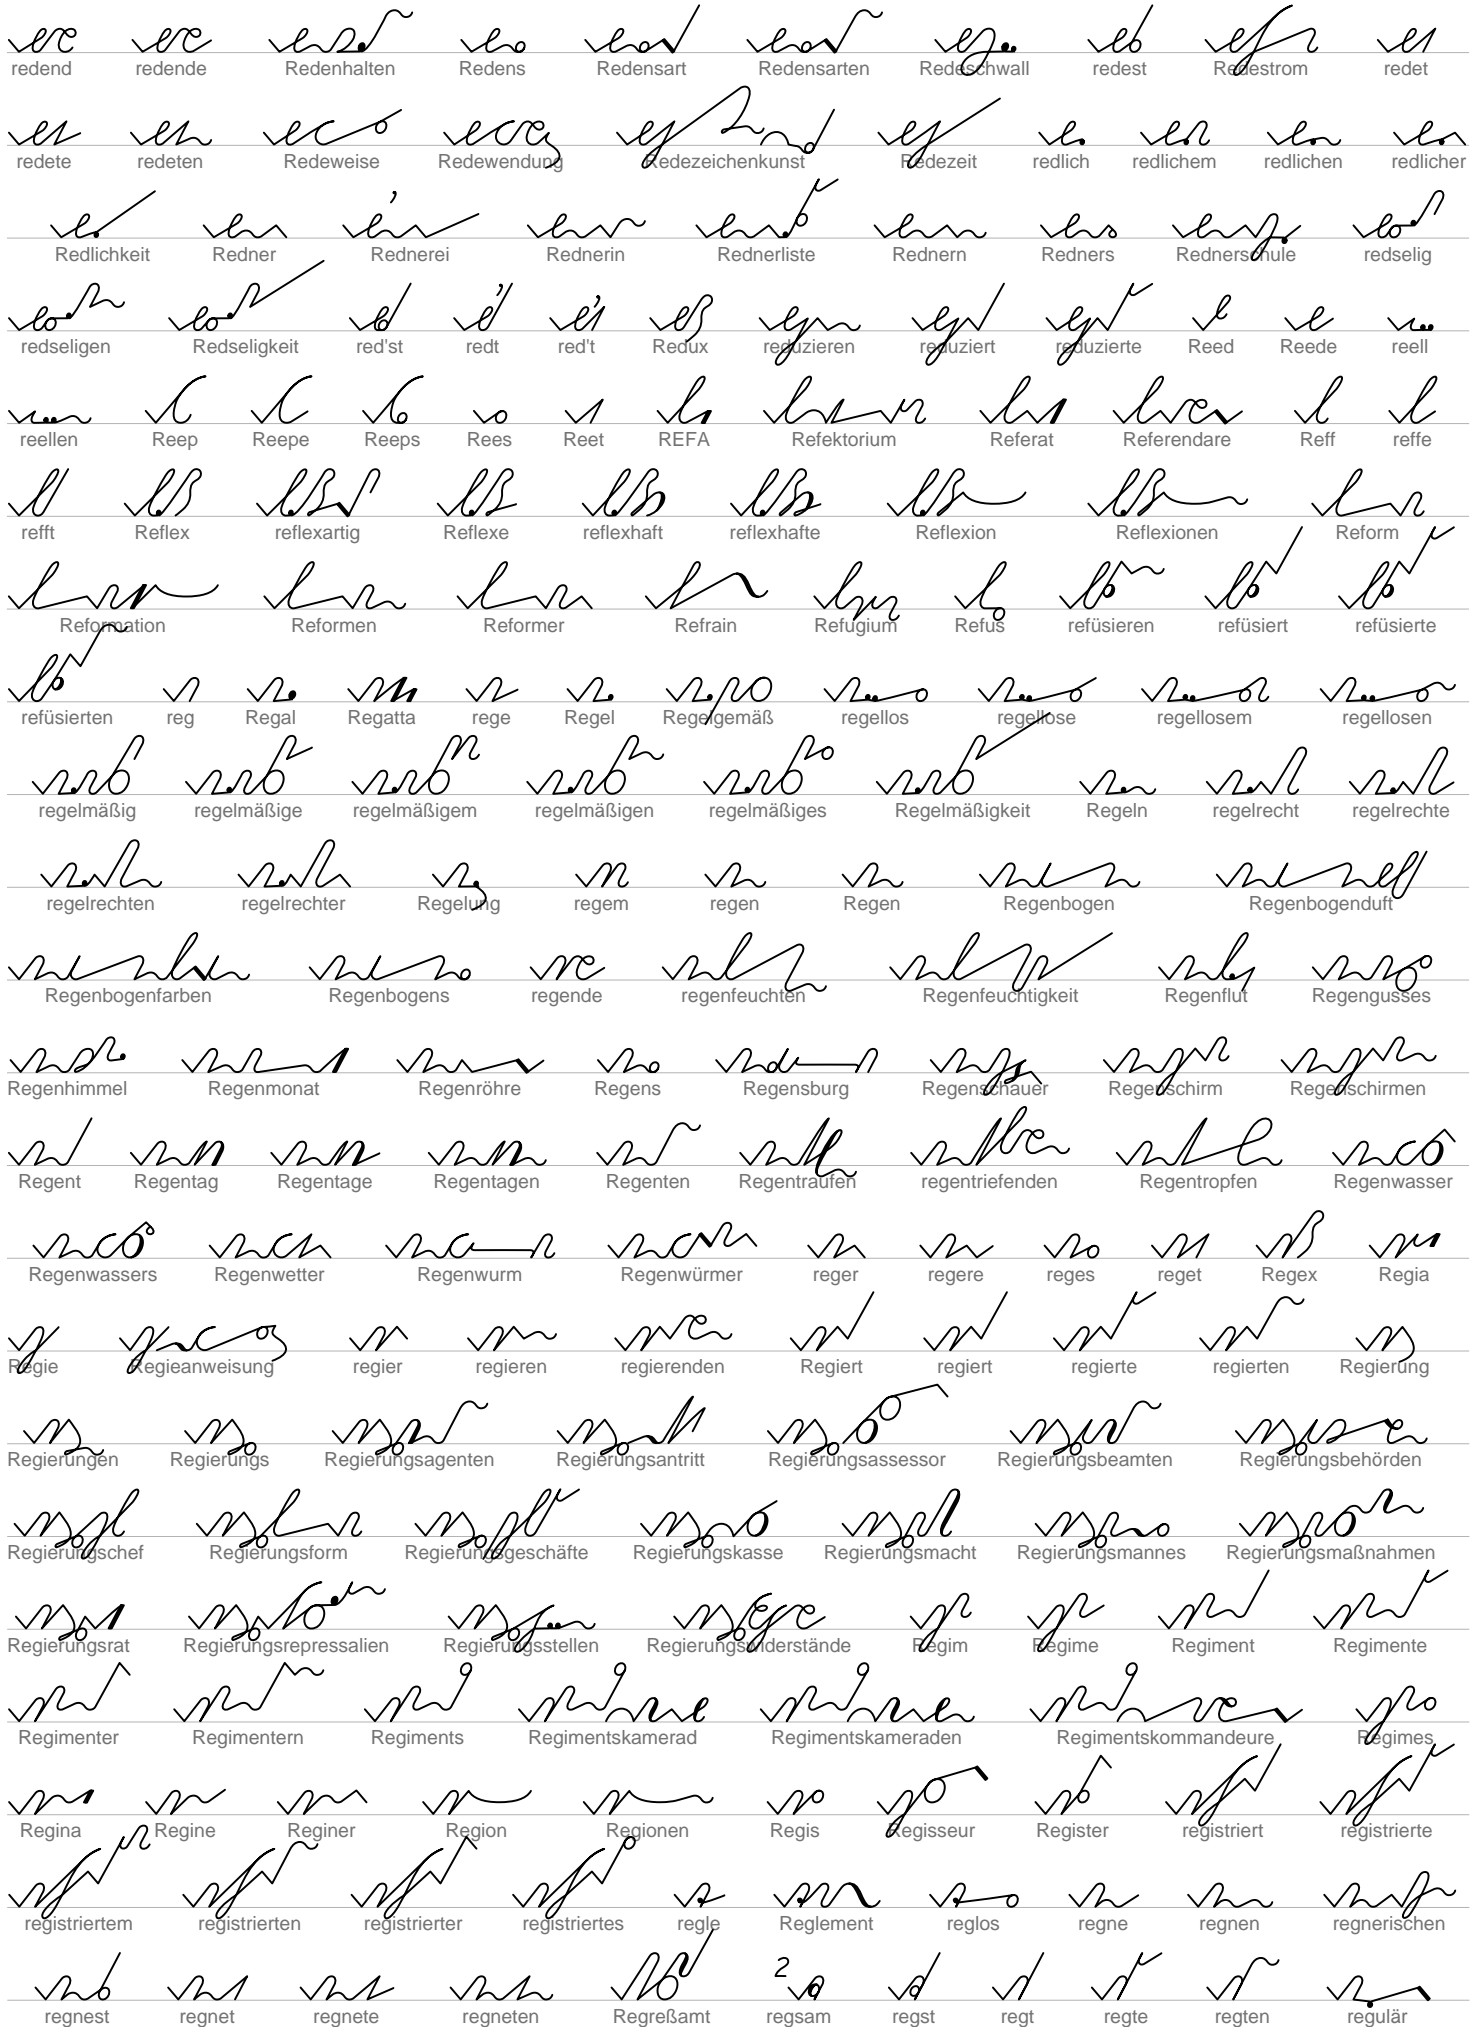 redend redende Redenhalten Redens Redensart Redensarten Redeschwall redest Redestrom redet
redete redeten Redeweise Redewendung Redezeichenkunst Redezeit redlich redlichem redlichen redlicher
Redlichkeit Redner Rednerei Rednerin Rednerliste Rednern Redners Rednerschule redselig
redseligen Redseligkeit red'st redt red't Redux reduzieren reduziert reduzierte Reed Reede reell
reellen Reep Reepe Reeps Rees Reet REFA Refektorium Referat Referendare Reff reffe
refft Reflex reflexartig Reflexe reflexhaft reflexhafte Reflexion Reflexionen Reform
Reformation Reformen Reformer Refrain Refugium Refus refüsieren refüsiert refüsierte
refüsierten reg Regal Regatta rege Regel Regelgemäß regellos regellose regellosem regellosen
regelmäßig regelmäßige regelmäßigem regelmäßigen regelmäßiges Regelmäßigkeit Regeln regelrecht regelrechte
regelrechten regelrechter Regelung regem regen Regen Regenbogen Regenbogenduft
Regenbogenfarben Regenbogens regende regenfeuchten Regenfeuchtigkeit Regenflut Regengusses
Regenhimmel Regenmonat Regenröhre Regens Regensburg Regenschauer Regenschirm Regenschirmen
Regent Regentag Regentage Regentagen Regenten Regentraufen regentriefenden Regentropfen Regenwasser
Regenwassers Regenwetter Regenwurm Regenwürmer reger regere reges reget Regex Regia
Regie Regieanweisung regier regieren regierenden Regiert regiert regierte regierten Regierung
Regierungen Regierungs Regierungsagenten Regierungsantritt Regierungsassessor Regierungsbeamten Regierungsbehörden
Regierungschef Regierungsform Regierungsgeschäfte Regierungskasse Regierungsmacht Regierungsmannes Regierungsmaßnahmen
Regierungsrat Regierungsrepressalien Regierungsstellen Regierungswiderstände Regim Regime Regiment Regimente
Regimenter Regimentern Regiments Regimentskamerad Regimentskameraden Regimentskommandeure Regimes
Regina Regine Reginer Region Regionen Regis Regisseur Register registriert registrierte
registriertem registrierten registrierter registriertes regle Reglement reglos regne regnen regnerischen
regnest regnet regnete regneten Regreßamt 2 regsam regst regt regte regten regulär